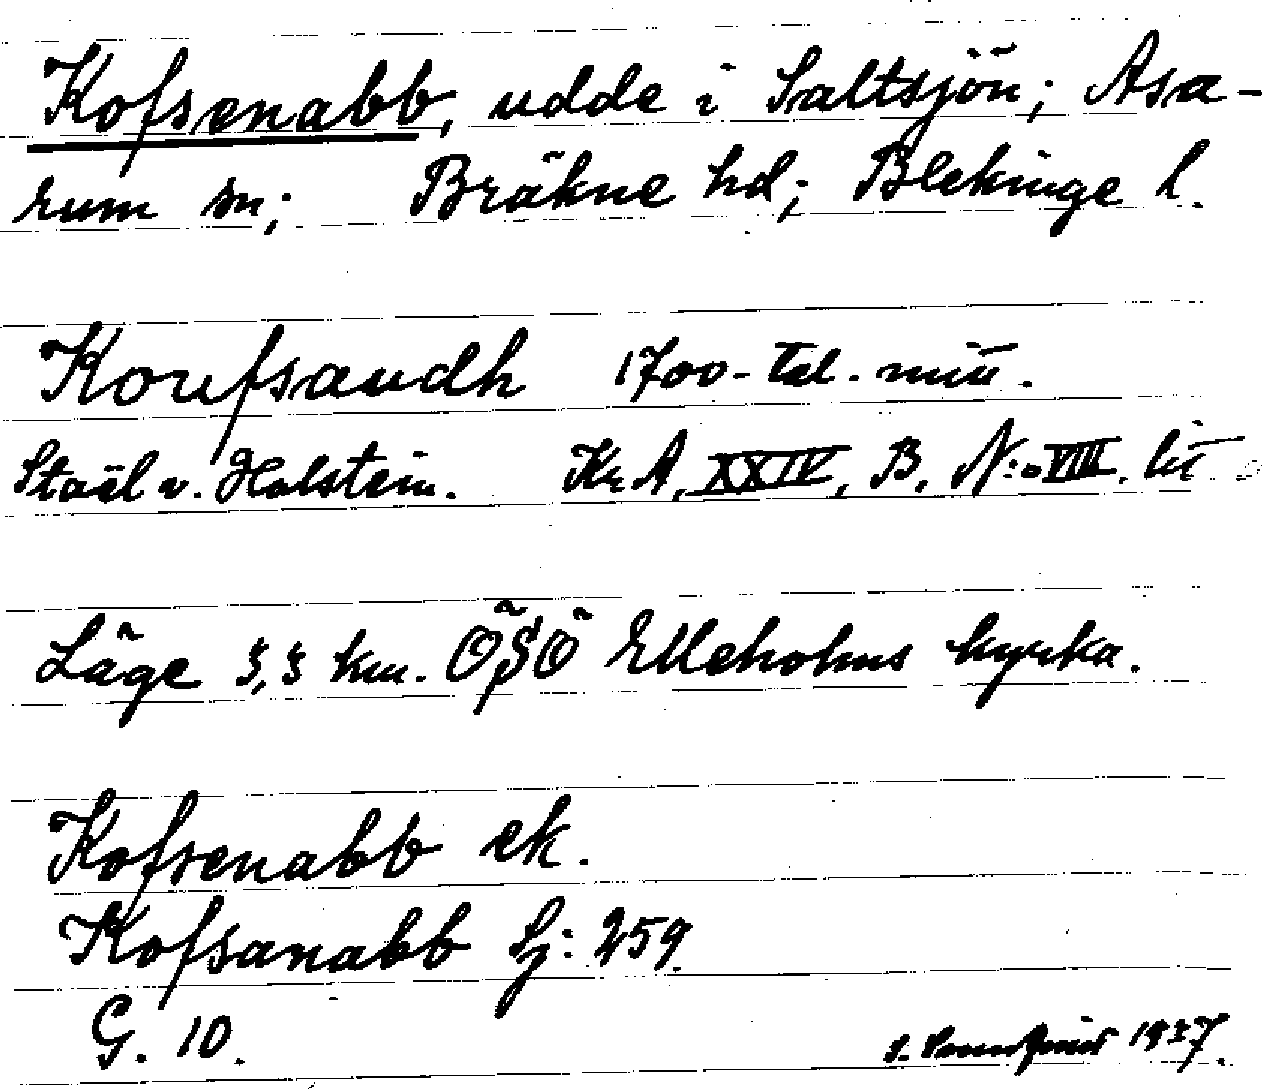 Kofsenabb, udde i Saltsjön; Asa-
rum sn; Bräkne hd; Blekinge l.
Koufsaudh 1700-tal. mitt.
Staël v. Holstein. Kr.A, XXIV, B, N:o VIII. litt
Läge 3,3 km. ÖSÖ Elleholms kyrka.
Kofsenabb ek.
Kofsanabb Sj: 259
G. 10.
1937.